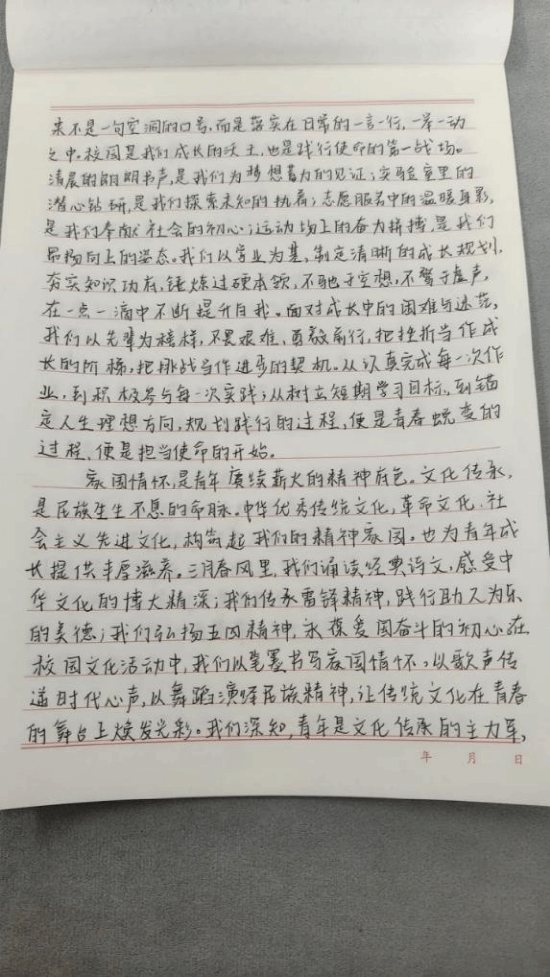 来不是一句空洞的口号,而是落实在日常的一言一行,一举一动
之中。校园是我们成长的沃土,也是践行使命的第一战场。
清晨的朗朗书声,是我们为梦想蓄力的见证;实验室里的
潜心钻研,是我们探索未知的执着;志愿服务中的温暖身影,
是我们奉献社会的初心;运动场上的奋力拼搏,是我们
昂扬向上的姿态。我们以学业为基,制定清晰的成长规划,
夯实知识功底,锤炼过硬本领,不驰于空想,不骛于虚声,
在一点一滴中不断提升自我。面对成长中的困难与迷茫,
我们以先辈为榜样,不畏艰难,勇毅前行,把挫折当作成
长的阶梯,把挑战当作进步的契机。从认真完成每一次作
业,到积极参与每一次实践;从树立短期学习目标,到锚
定人生理想方向,规划践行的过程,便是青春蜕变的
过程,便是担当使命的开始。
家国情怀,是青年赓续薪火的精神底色。文化传承,
是民族生生不息的命脉。中华优秀传统文化,革命文化,社
会主义先进文化,构筑起我们的精神家园。也为青年成
长提供丰厚滋养。三月春风里,我们诵读经典诗文,感受中
华文化的博大精深;我们传承雷锋精神,践行助人为乐
的美德;我们弘扬五四精神,永葆爱国奋斗的初心在
校园文化活动中,我们以笔墨书写家国情怀,以歌声传
递时代心声,以舞蹈演绎民族精神,让传统文化在青春
的舞台上焕发光彩。我们深知,青年是文化传承的主力军,
年 月 日